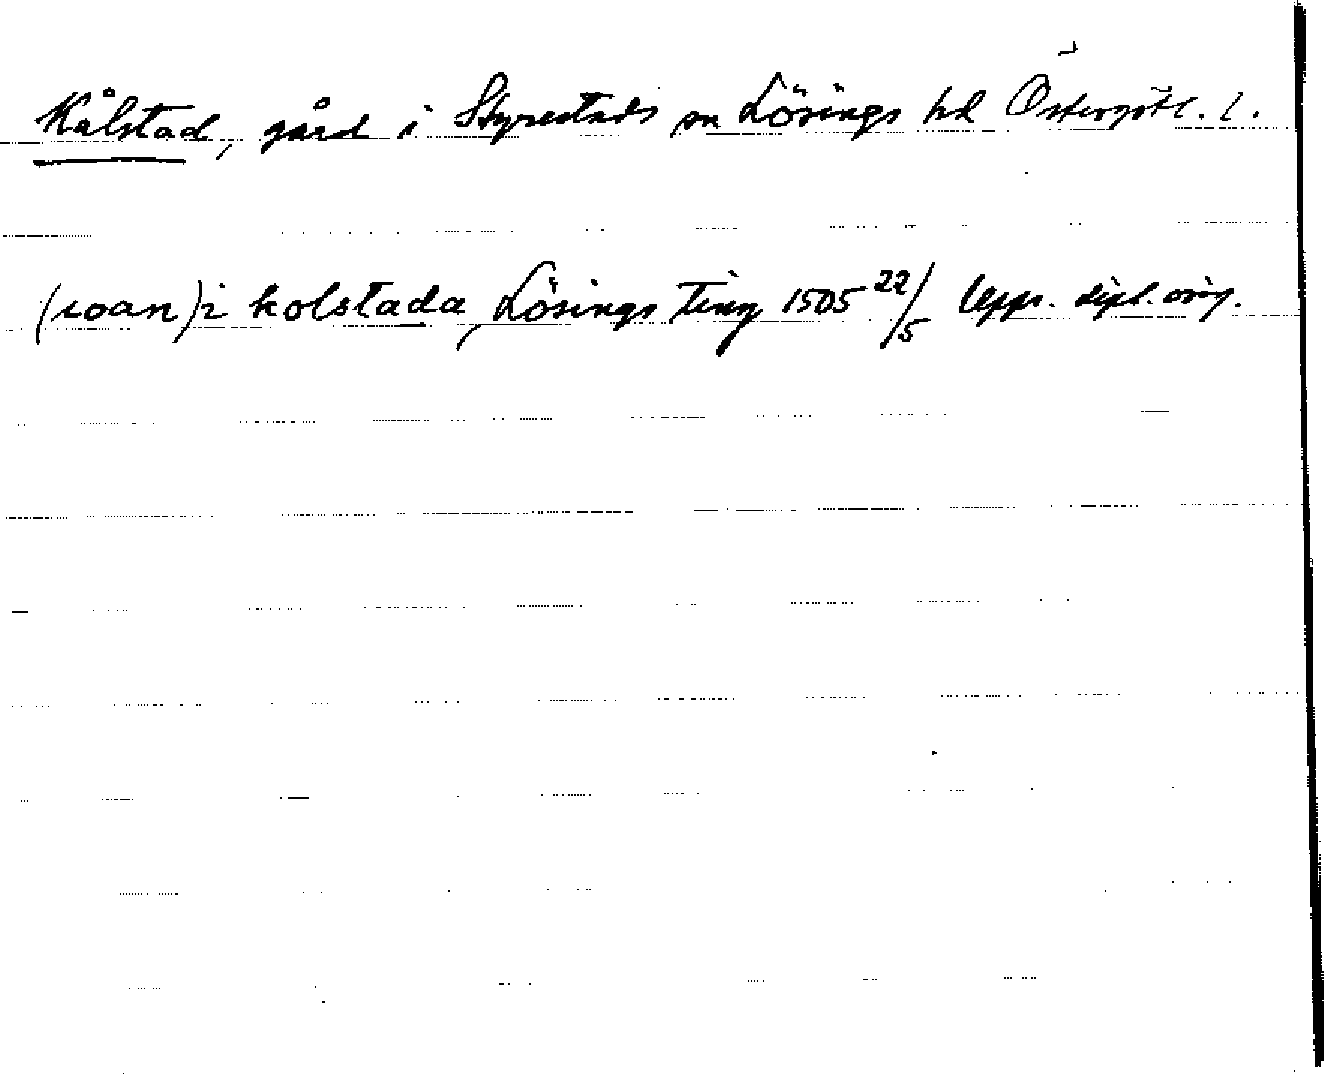 Kålstad, gård i Styrestads sn Lösings hd Östergötl. l.
(ioan) i kolstada, Lösings Ting 1505 22/5 Upps. dipl. orig.